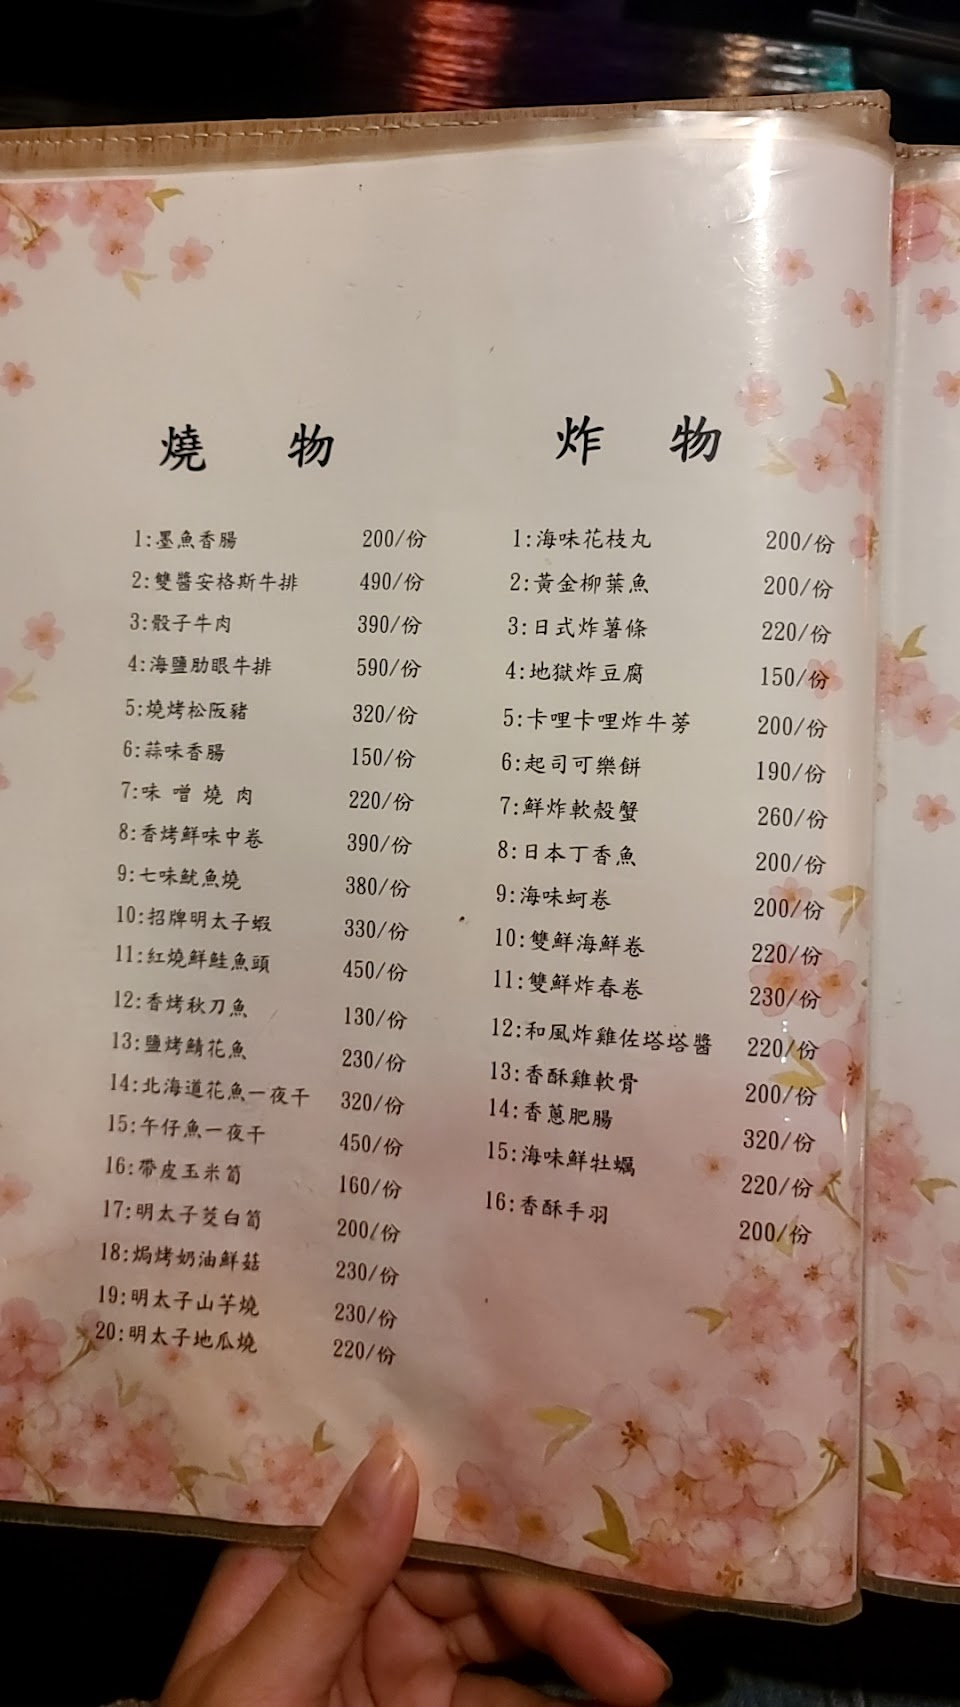 燒 物
1:墨魚香腸 200/份
2:雙醬安格斯牛排 490/份
3:骰子牛肉 390/份
4:海鹽肋眼牛排 590/份
5:燒烤松阪豬 320/份
6:蒜味香腸 150/份
7:味 噌 燒 肉 220/份
8:香烤鮮味中卷 390/份
9:七味魷魚燒 380/份
10:招牌明太子蝦 330/份
11:紅燒鮮鮭魚頭 450/份
12:香烤秋刀魚 130/份
13:鹽烤鯖花魚 230/份
14:北海道花魚一夜干 320/份
15:午仔魚一夜干 450/份
16:帶皮玉米筍 160/份
17:明太子茭白筍 200/份
18:焗烤奶油鮮菇 230/份
19:明太子山芋燒 230/份
20:明太子地瓜燒 220/份
炸 物
1:海味花枝丸 200/份
2:黃金柳葉魚 200/份
3:日式炸薯條 220/份
4:地獄炸豆腐 150/份
5:卡哩卡哩炸牛蒡 200/份
6:起司可樂餅 190/份
7:鮮炸軟殼蟹 260/份
8:日本丁香魚 200/份
9:海味蚵卷 200/份
10:雙鮮海鮮卷 220/份
11:雙鮮炸春卷 230/份
12:和風炸雞佐塔塔醬 220/份
13:香酥雞軟骨 200/份
14:香蔥肥腸 320/份
15:海味鮮牡蠣 220/份
16:香酥手羽 200/份